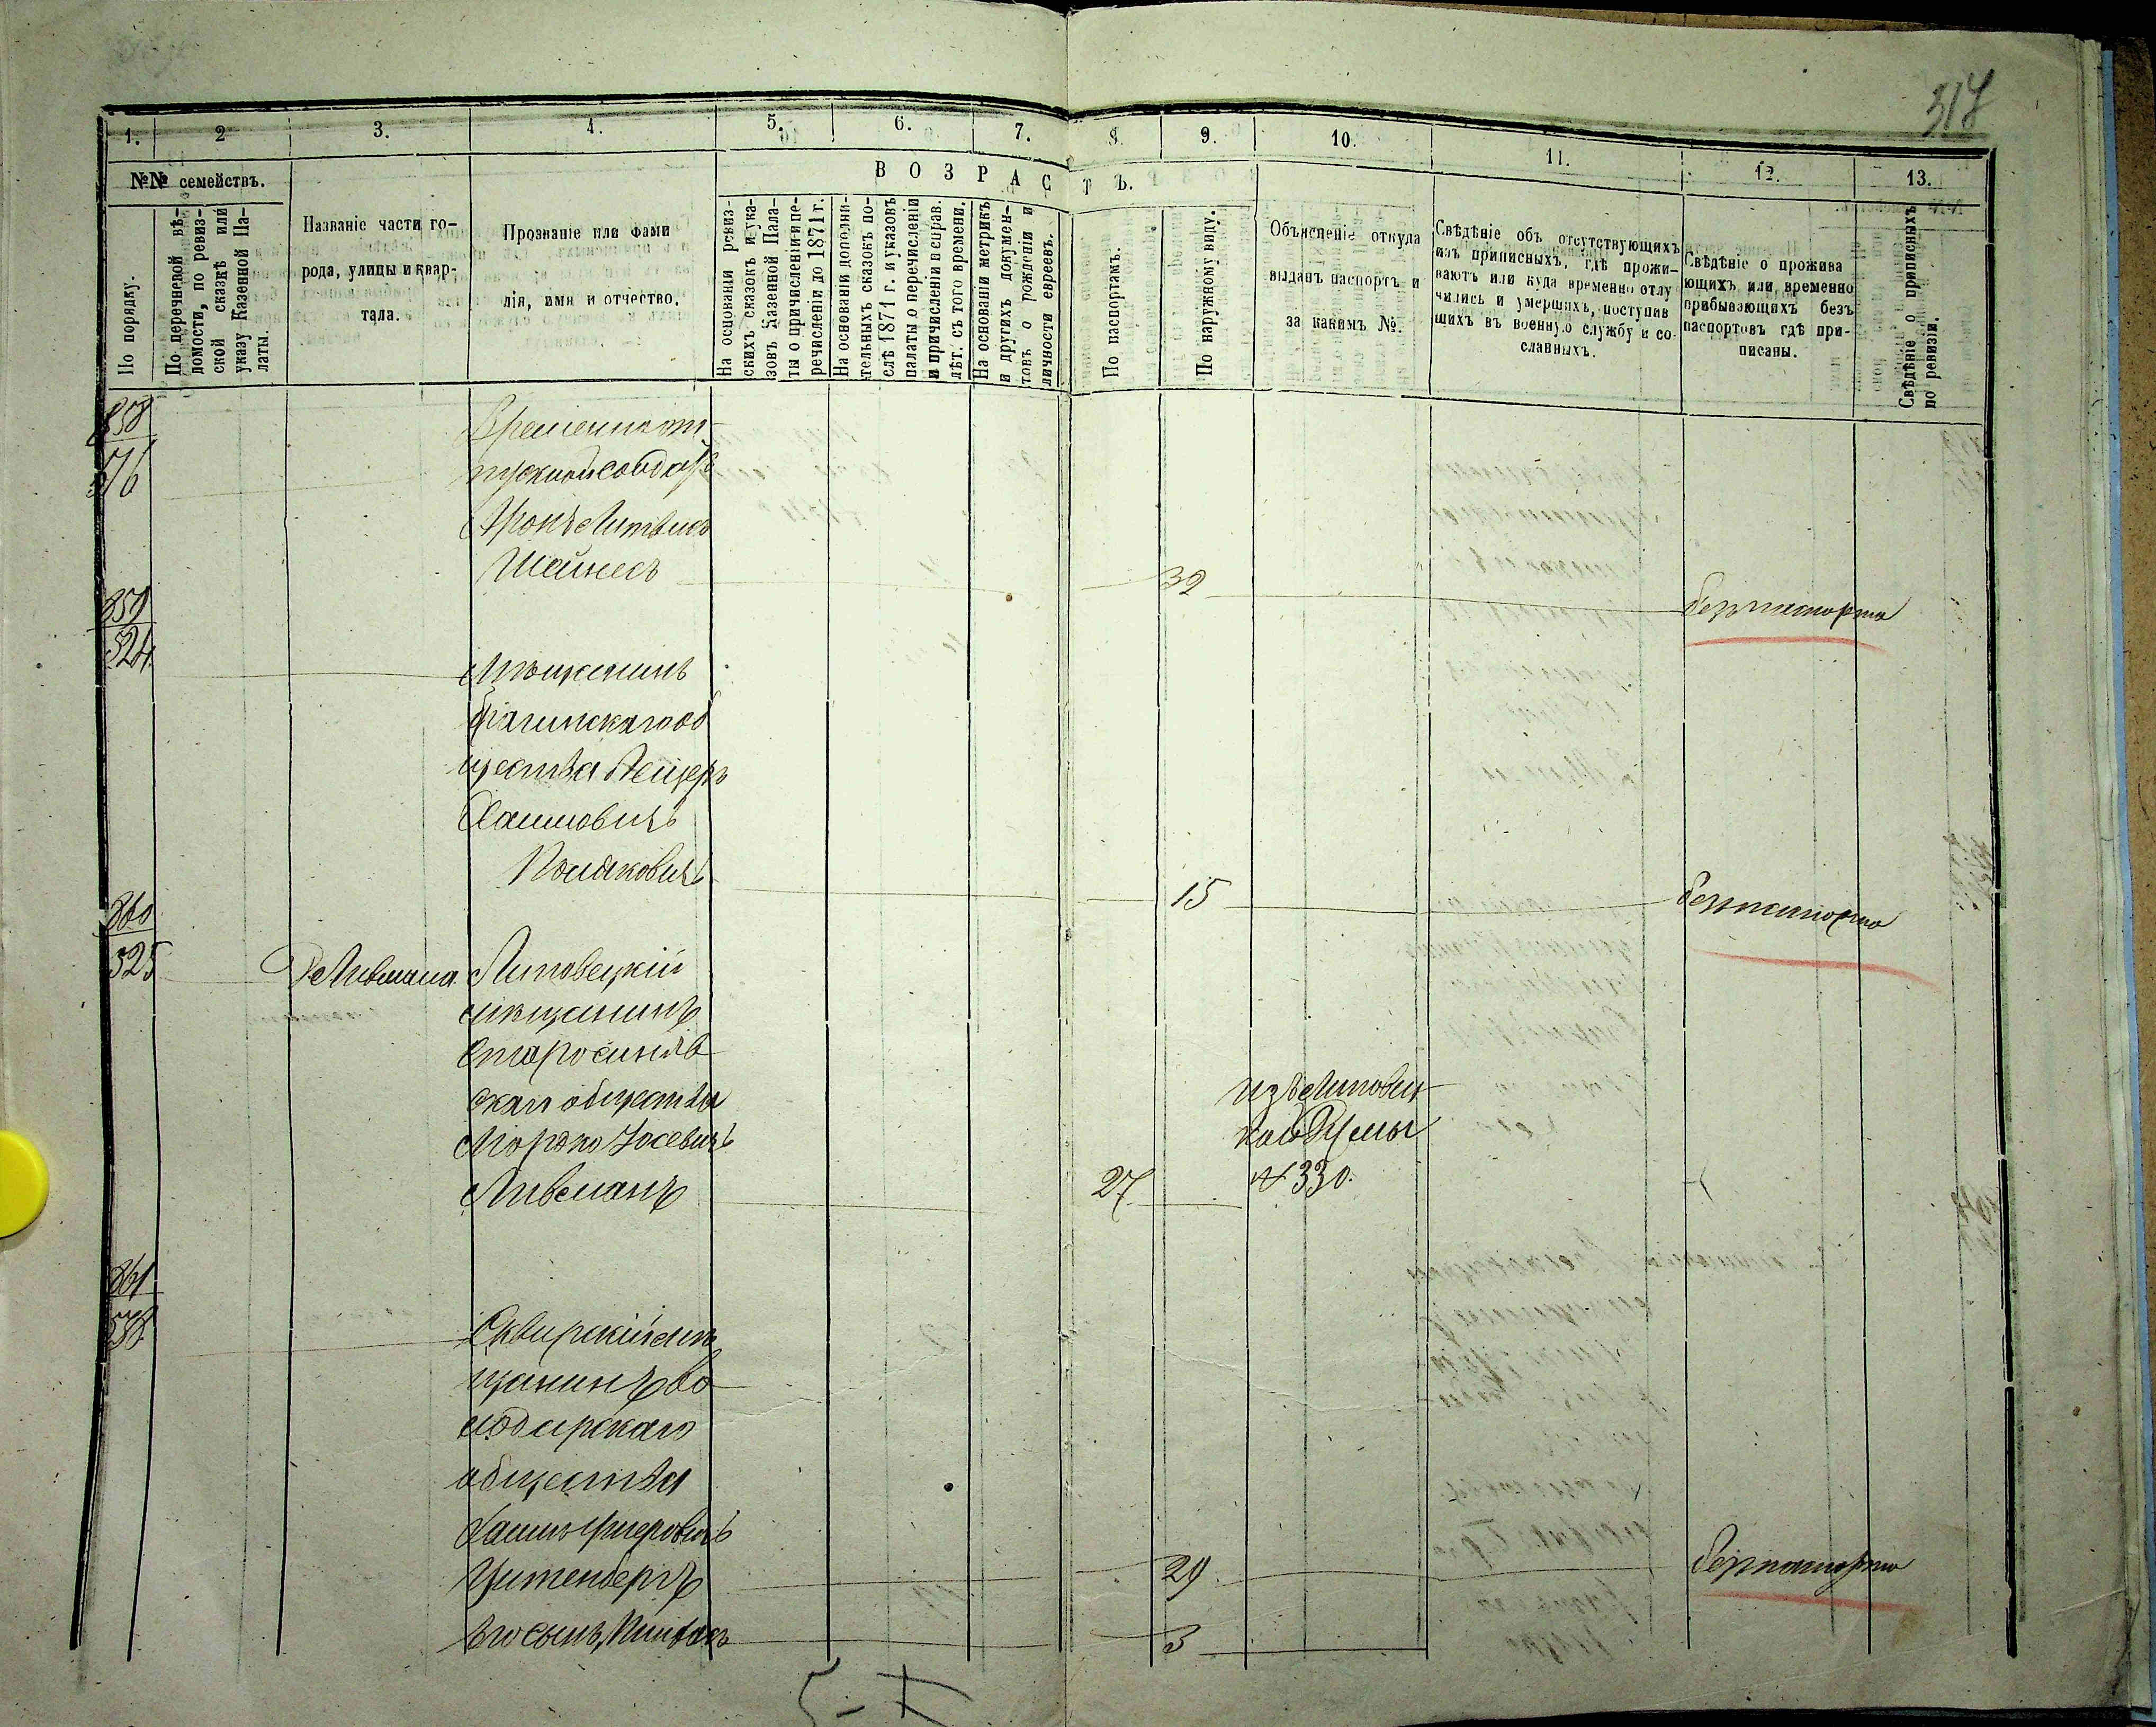 317
1. 2 3. 4. 5. 6. 7. 8. 9. 10. 11. 12. 13.
№№ семействъ.
По порядку.
По перечневой вѣ-
домости, по ревиз-
ской сказкѣ или
указу Казенной Па-
латы.
Названіе части го-
рода, улицы и квар-
тала.
Прозваніе или фами
лія, имя и отчество.
ВОЗРАСТЪ.
На основаніи ревиз-
скихъ сказокъ и ука-
зовъ Казенной Пала-
ты о причисленіи и пе-
речисленіи до 1871 г.
На основаніи дополни-
тельныхъ сказокъ по-
слѣ 1871 г. и указовъ
палаты о перечисленіи
и причисленіи и справ.
лѣт. съ того времени.
На основаніи метрикъ
и другихъ докумен-
товъ о рожденіи и
личности евреевъ.
По паспортамъ.
По наружному виду.
Объясненіе откуда
выданъ паспортъ и
за какимъ №.
Свѣдѣніе объ отсутствующихъ
изъ приписныхъ, гдѣ прожи-
ваютъ или куда временно отлу
чились и умершихъ, поступив
шихъ въ военную службу и со-
сланныхъ.
Свѣдѣніе о прожива
ющихъ или временно
прибывающихъ безъ
паспортовъ гдѣ при-
писаны.
Свѣдѣніе о приписныхъ
по ревизіи.
858
516
Временно от-
пускной солдатъ
Аронъ Литвинъ
Шейнесъ 32 безъ паспорта
859
524
Мѣщанинъ
об
щества Лейзеръ
Хаимовичъ
15 безъ паспорта
860
325 Д Ливмана Липовецкій
мѣщанинъ
Старосиняв
скаго общества
Мордко Іосевичъ
Ливманъ 27
изъ Липовец
кой Думы
№ 330.
861
538
Сквирскій мѣ
щанинъ Во
лодарскаго
общества
Хаимъ
Цитенбергъ 29 безъ паспорта
Его сынъ 3